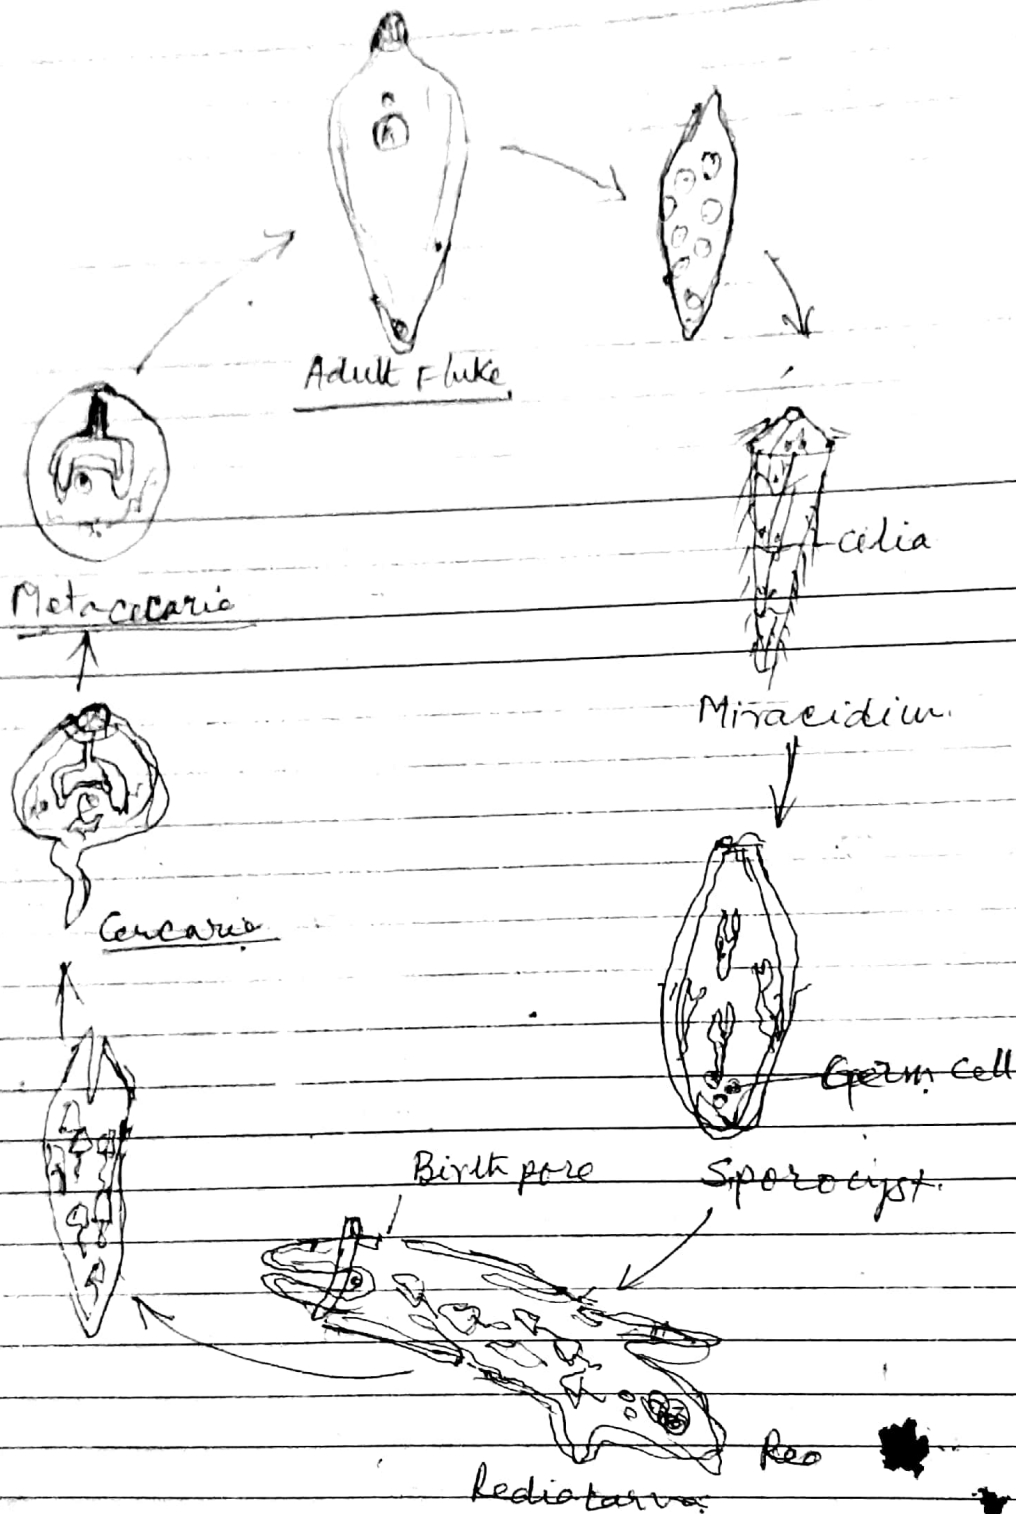 Adult Fluke
cilia
Metacecaria
Miracidium.
Cercaria
Germ Cell
Birth pore
Sporocyst.
Reo
Redia Larva